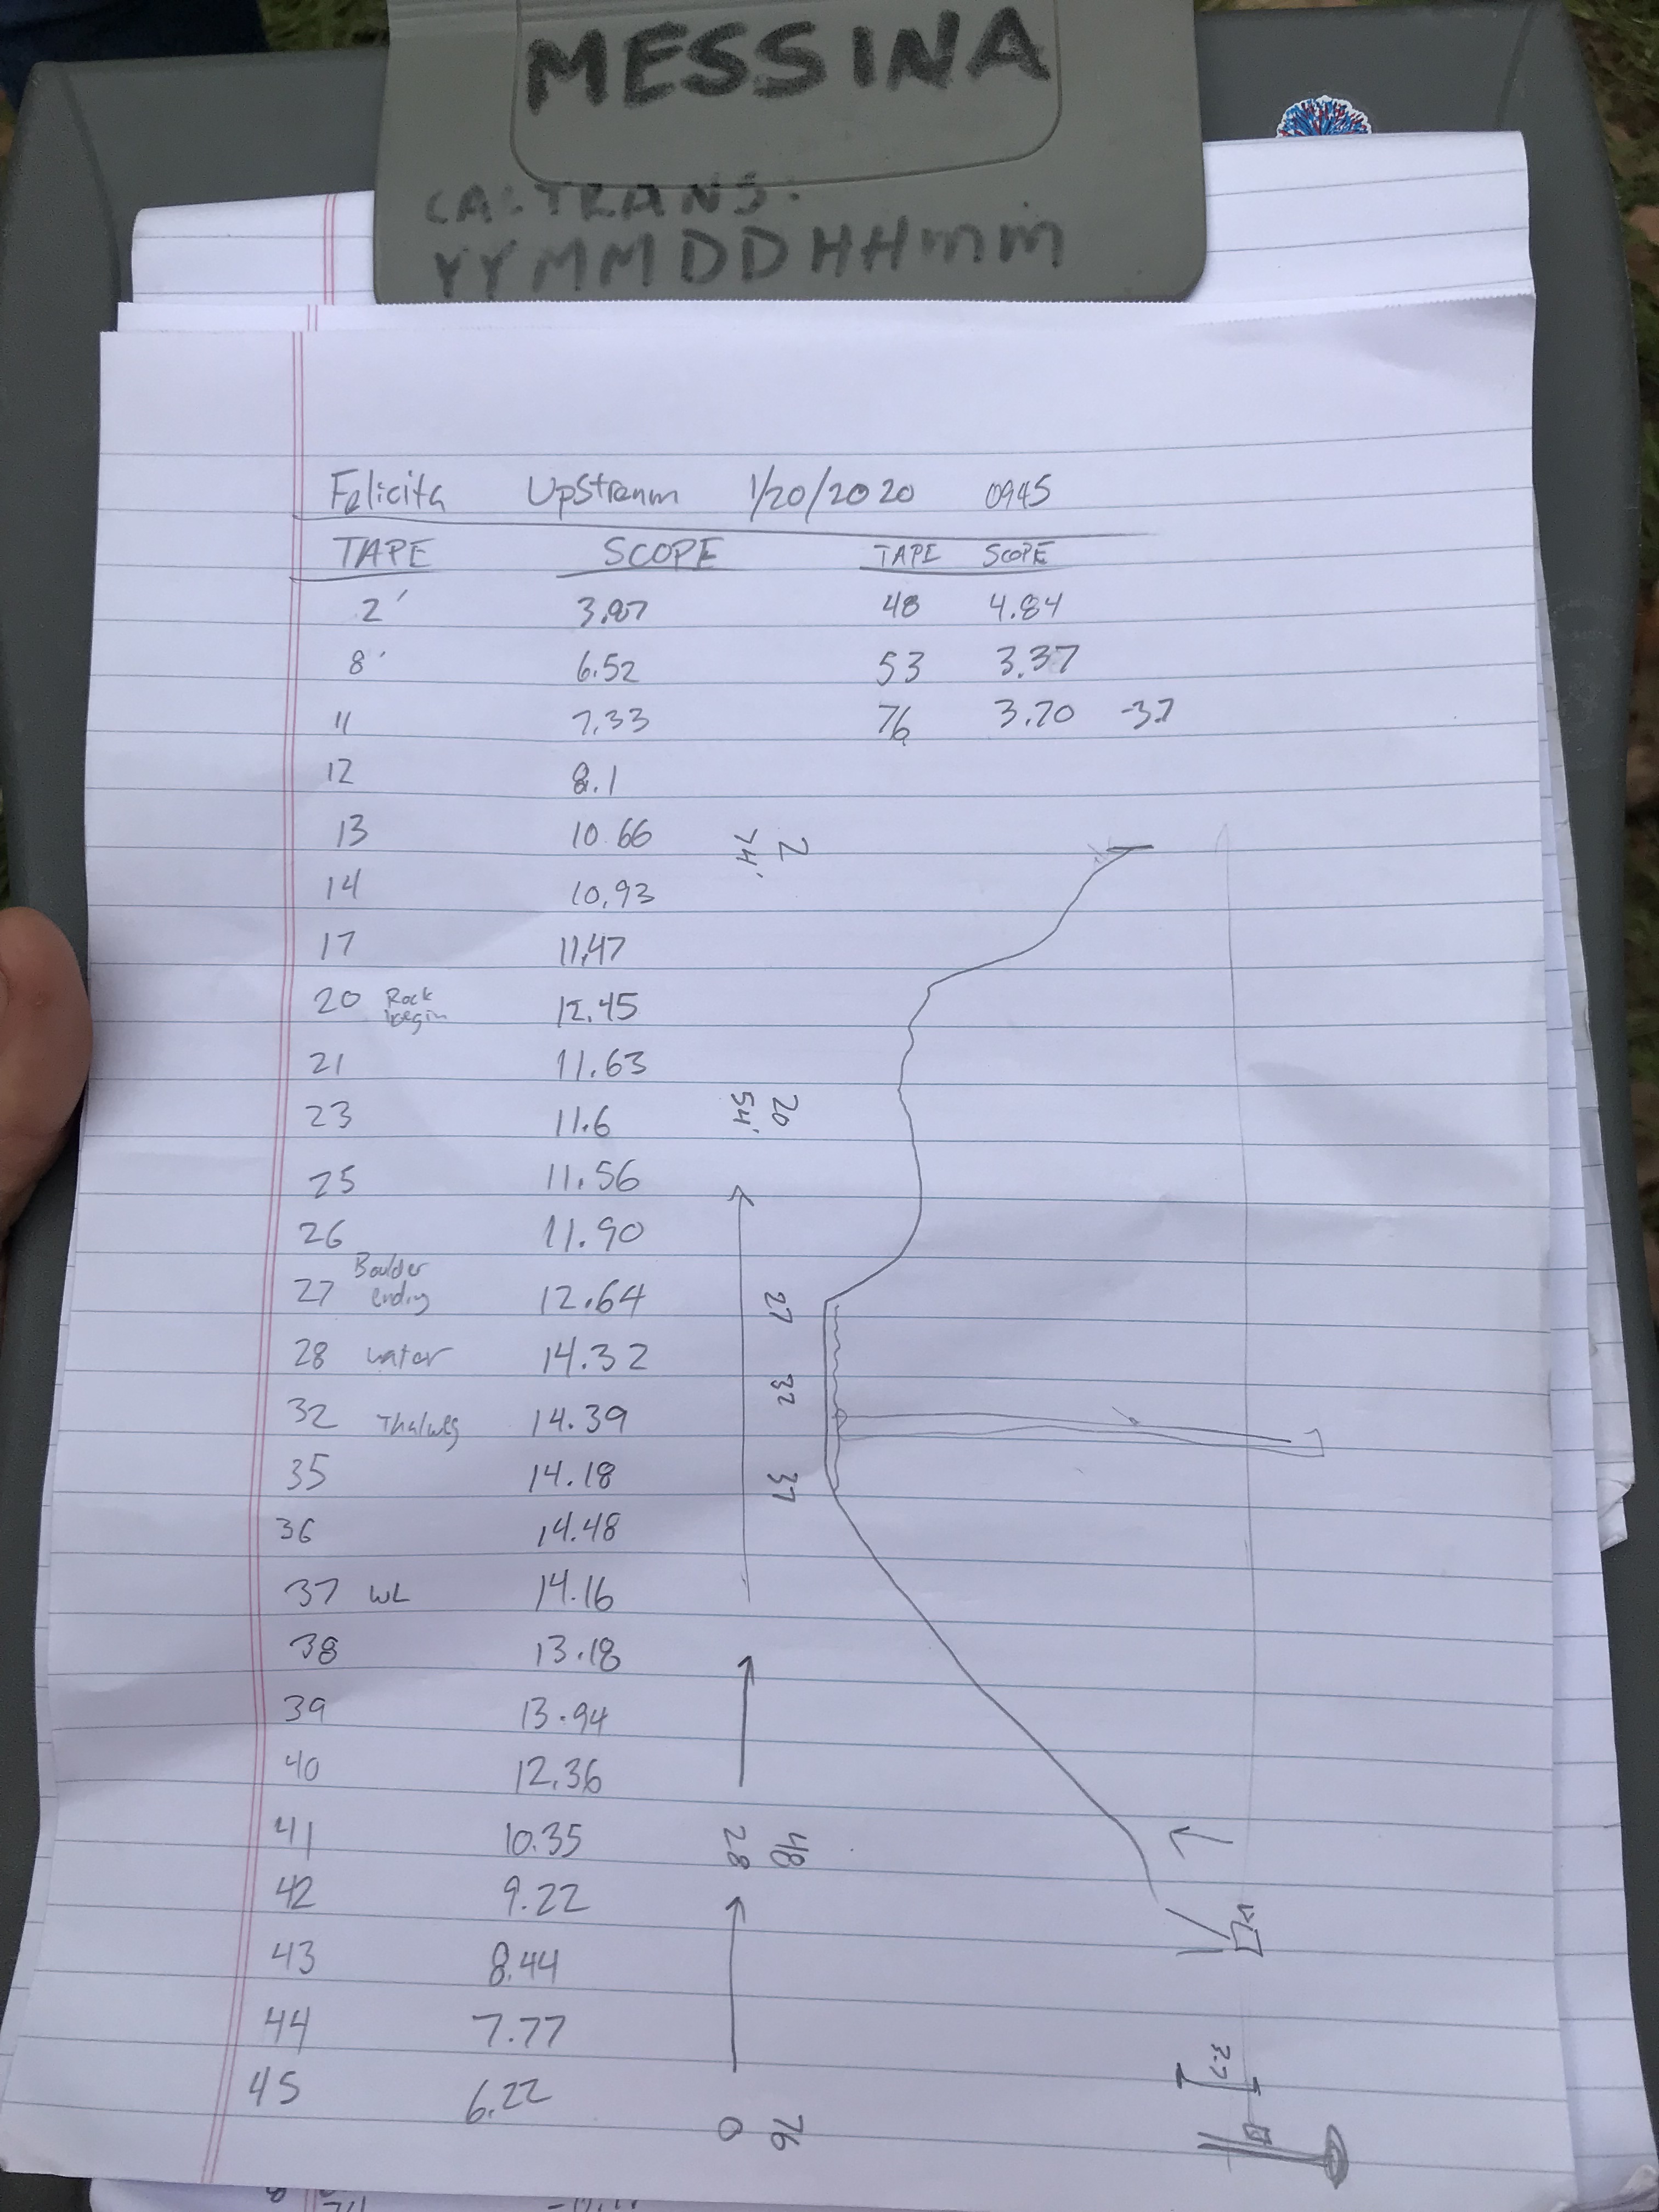 MESSINA
CALTRANS:
YYMMDDHHmm
Felicita Upstream 1/20/2020 0945
TAPE SCOPE TAPE SCOPE
2' 3.87 48 4.84
8' 6.52 53 3.37
11 7.33 76 3.70 -3.7
12 8.1
13 10.66
14 10.93
17 11.47
20 Rock begin 12.45
21 11.63
23 11.6
25 11.56
26 11.90
27 Boulder ending 12.64
28 water 14.32
32 Thalweg 14.39
35 14.18
36 14.48
37 WL 14.16
38 13.18
39 13.94
40 12.36
41 10.35
42 9.22
43 8.44
44 7.77
45 6.22
2
74'
20
54'
27
32
37
48
28
76
0
3.7